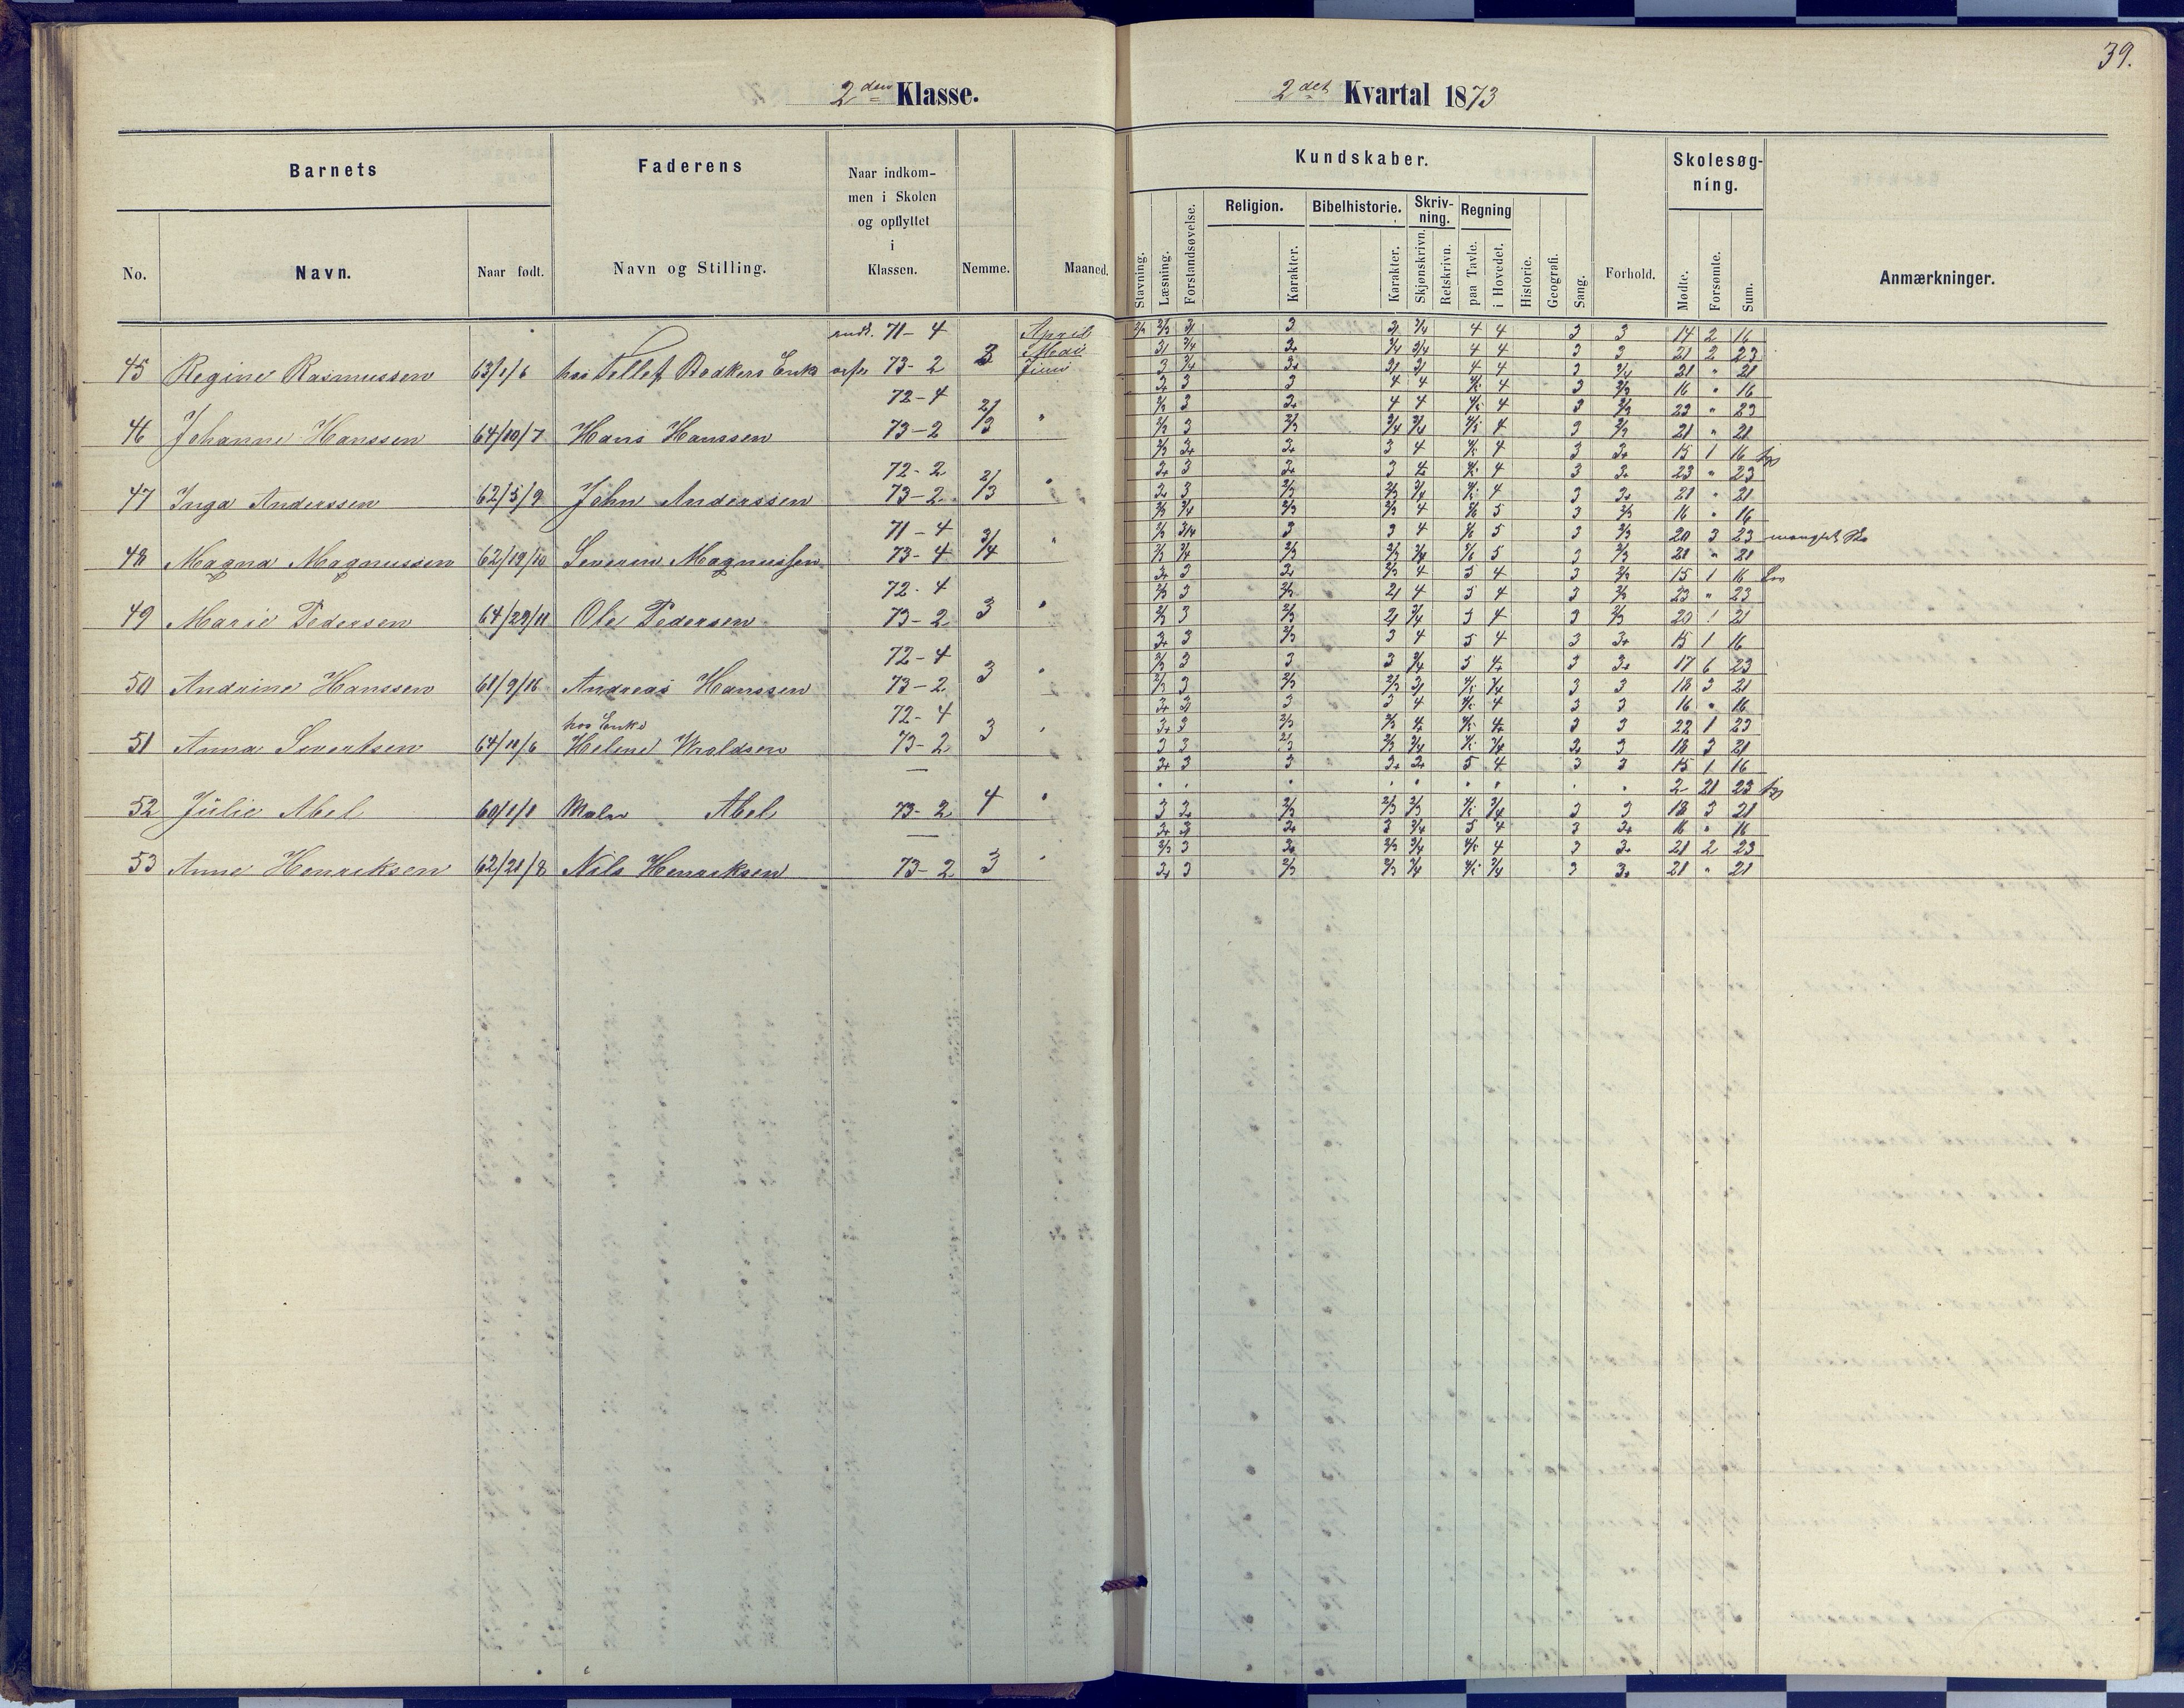 39.
2den Klasse.
2det Kvartal 1873
Barnets
Faderens
Naar indkommen i Skolen og opflyttet i Klassen.
Nemme.
Maaned.
Kundskaber.
Forhold.
Skolesøgning.
Anmærkninger.
No. Navn. Naar født. Navn og Stilling.
Stavning. Læsning. Forstandsøvelse. Religion. Karakter. Bibelhistorie. Karakter. Skrivning. Skjønskrivn. Retskrivn. Regning paa Tavle. i Hovedet. Historie. Geografi. Sang. Mødte. Forsømte. Sum.
71-4 April 2/3 3 3 3/4 4 4 3 3 14 2 16
Mai 3/4 4 4 3 3 21 2 23
45 Regine Rasmussen 63/1/6 hos Tellef Bødkers Enke 73-2 3 Juni 3 3/4 4 4 3 3/4 21 " 21
72-4 3 3 4 4 4 3 2/3 16 " 16
2/3 3 4 4 4 3 2/3 23 " 23
46 Johanne Hanssen 64/10/7 Hans Hanssen 73-2 2/3 " 2/3 3 2/3 3/4 3/4 4 3 2/3 21 " 21
2/3 3+ 3+ 3 4 4 3 3+ 15 1 16
72-2 3+ 3 3+ 3 4 4 3 3+ 23 " 23
47 Inga Anderssen 62/5/9 John Anderssen 73-2 2/3 " 3+ 3 2/3 2/3 3/4 4 3 3+ 21 " 21
2/3 3/4 2/3 2/3 4 5 3 2/3 16 " 16
71-4 2/3 3/4 3 3 4 5 3 2/3 20 3 23
48 Magna Magnussen 62/19/10 Severin Magnussen 73-4 3/4 " 2/3 3/4 2/3 2/3 3/4 5 3 2/3 21 " 21
3+ 3 3+ 2/3 4 5 4 3 2/3 15 1 16
72-4 2/3 3 2/3 4 5 4 3 2/3 23 " 23
49 Marie Pedersen 64/29/11 Ole Pedersen 73-2 3 " 2/3 3 2/3 3/4 5 4 3 2/3 20 1 21
3+ 3 2/3 3 4 5 4 3 3+ 15 1 16
72-4 2/3 3 3 3 3/4 5 4+ 3 3+ 17 6 23
50 Andrine Hanssen 61/9/16 Andreas Hanssen 73-2 3 " 2/3 3 2/3 2/3 3/4 3 3 18 3 21
3+ 3 3 4 4 3 3 16 " 16
hos Enke 72-4 3+ 3 2/3 2/3 4+ 4+ 3 3 22 1 23
51 Anna Sivertsen 64/11/6 Helene Wraldsen 73-2 3 " 3 3 2/3 2/3 3/4 3/4 3+ 3 18 3 21
— 3+ 3 3 3+ 3+ 5 4 3 3 15 1 16
2 21 23
52 Julie Abel 60/1/1 Maler Abel 73-2 4 " 3 3+ 2/3 2/3 2/3 3/4 3 3 18 3 21
— 3+ 3 3+ 3 3/4 5 4 3 3+ 16 " 16
2/3 3 3+ 2/3 3/4 4 3 3+ 21 2 23
53 Anne Henriksen 62/21/8 Nils Henriksen 73-2 3 " 3+ 3 2/3 2/3 3/4 3/4 3 3+ 21 " 21